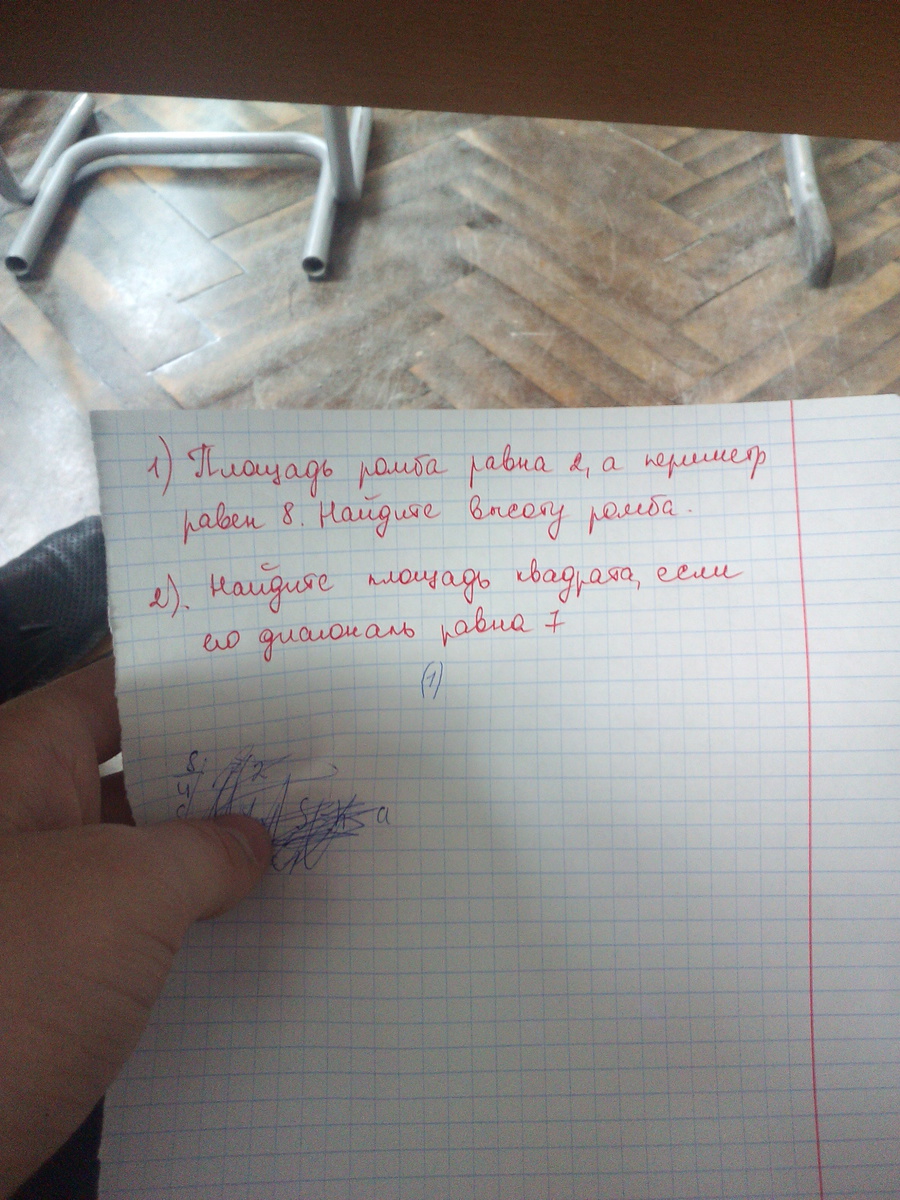 1) Площадь ромба равна 2, а периметр
равен 8. Найдите высоту ромба.
2). Найдите площадь квадрата, если
его диагональ равна 7
(1)
8
4
2
a